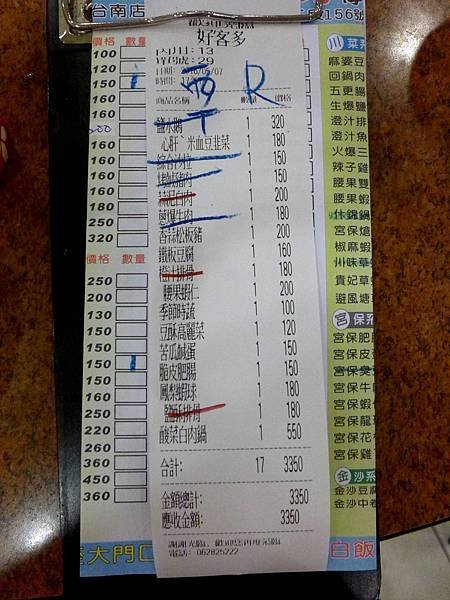 台南店
156號
歡迎光臨
好客多
價格 數量
丙用: 13
單號: 29
商品名稱 數量 價格
鹽水鵝 1 320
心肝ˋ米血豆韭菜 1 180
綜合沙拉 1 150
烤鹹豬肉 1 150
蒜泥白肉 1 200
蔥爆牛肉 1 180
香蒜松板豬 1 200
鐵板豆腐 1 160
橙汁排骨 1 180
腰果蝦仁 1 200
季節時蔬 1 100
豆酥高麗菜 1 120
苦瓜鹹蛋 1 150
脆皮肥腸 1 150
鳳梨蝦球 1 180
鹽酥排骨 1 180
酸菜白肉鍋 1 550
合計: 17 3350
金額總計: 3350
應收金額: 3350
謝謝光臨, 歡迎您再度光臨
電話: 062825222
100
120
150
160
160
160
160
160
200
250
320
價格 數量
250
200
130
150
150
150
160
250
220
260
360
450
360
川 菜系
麻婆豆
回鍋肉
五更腸
生爆鹽
澄汁排
澄汁魚
火爆三
辣子雞
腰果雙
腰果蝦
什錦鍋
宮保熗
椒麻蝦
川味草
貴妃草
避風塘
宮 保系
宮保肥
宮保皮
宮保臭
宮保牛
宮保蝦
宮保龍
宮保花
宮保雞
金 沙系
金沙豆腐
金沙中卷
大門口
白飯